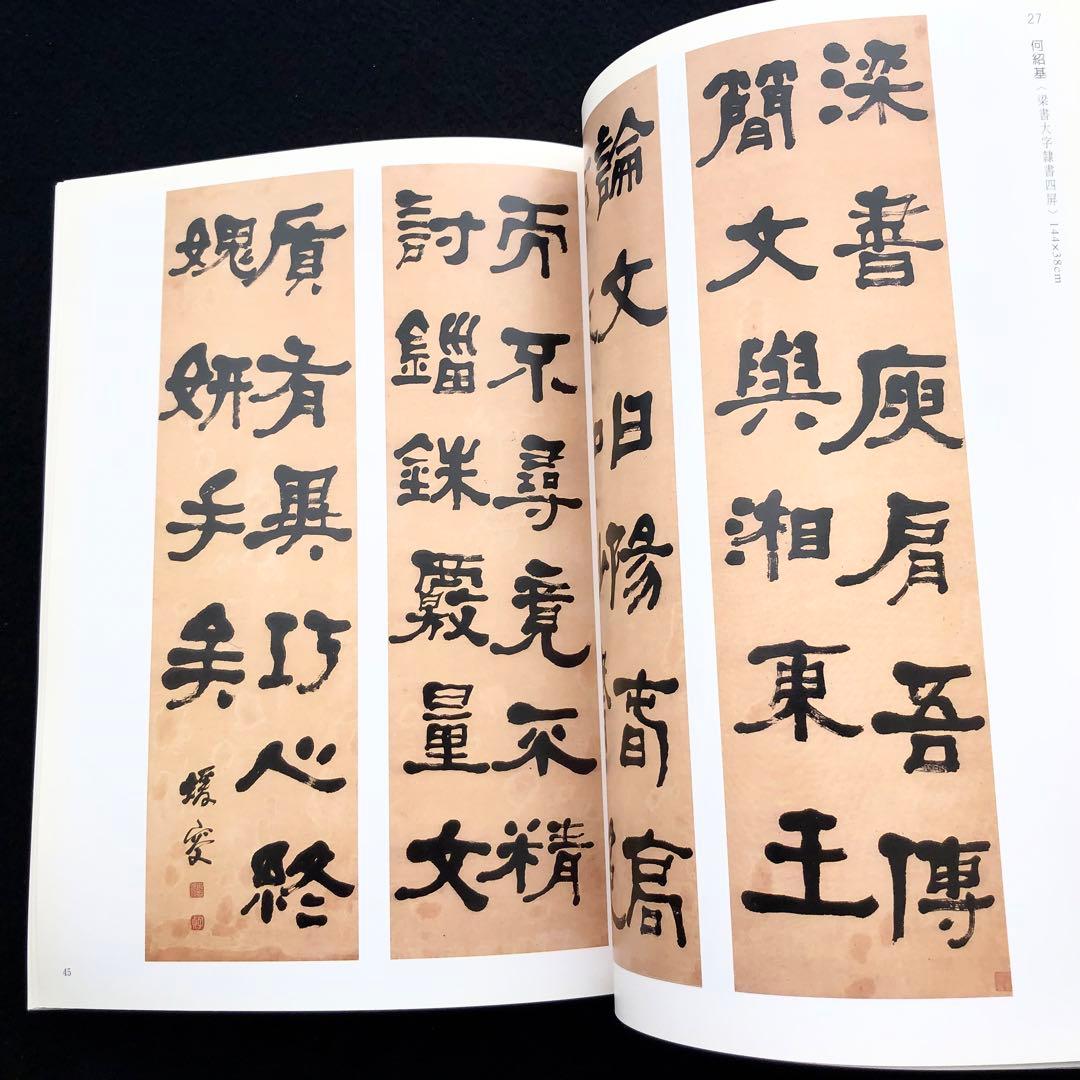 27 何紹基〈梁書大字隸書四屏〉144×38cm
梁書庾肩吾傳
簡文與湘東王
論文曰陽春高
而不尋竟不精
討錙銖覈量文
質有異巧心終
媿妍手矣
蝯叟
45